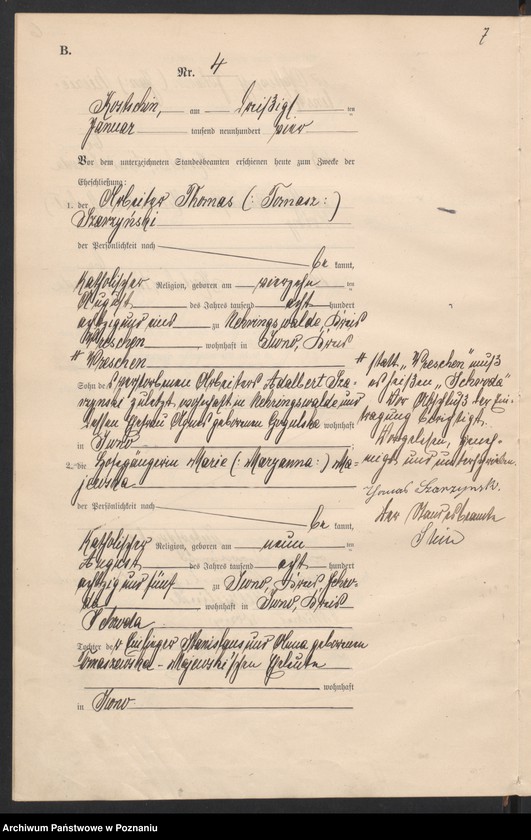 7
B.
Nr. 4
Kostschin, am dreißigsten
Januar tausend neunhundert vier
Vor dem unterzeichneten Standesbeamten erschienen heute zum Zwecke der
Eheschließung:
1. der Arbeiter Thomas (: Tomasz :)
Szarzyński
der Persönlichkeit nach
be kannt,
katholischer Religion, geboren am vierzehnten
August des Jahres tausend acht hundert
achtzig und eins zu Nehringswalde, Kreis
Wreschen, wohnhaft in Iwno, Kreis
# Wreschen
Sohn des verstorbenen Arbeiters Adalbert Sza-
rzynski zuletzt wohnhaft in Nehringswalde und
dessen Ehefrau Agnes geborenen wohnhaft
in Iwno
2. die Hofegängerin Marie (: Maryanna :) Ma-
jewska
der Persönlichkeit nach
be kannt,
katholischer Religion, geboren am neunten
August des Jahres tausend acht hundert
achtzig und fünf zu Iwno, Kreis Schro-
da, wohnhaft in Iwno, Kreis
Schroda
Tochter der Einlieger Stanislaus und Anna geborenen
Tomaszewska - Majewski'schen Eheleute
wohnhaft
in Iwno
# statt "Wreschen" muß
es heißen "Schroda"
Vor Abschluß der Ein-
tragung berichtigt.
Vorgelesen, geneh-
migt und unterschrieben.
Thomas Szarzynski.
Der Standesbeamte
Stein
Archiwum Państwowe w Poznaniu